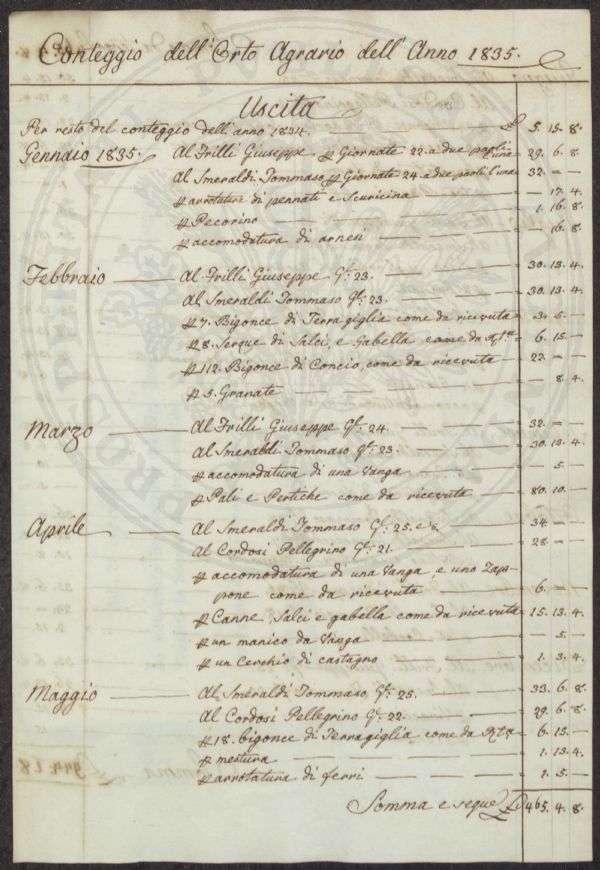 Conteggio dell'Orto Agrario dell'Anno 1835.
Uscita
Per resto del conteggio dell'anno 1834. 5. 15. 8.
Gennaio 1835. Al Frilli Giuseppe p Giornate 22. a due paoli l'una 29. 6. 8.
Al Smeraldi Tommaso p Giornate 24. a due paoli l'una 32. =
p arrotature di pennati e Scuricina — 17. 4.
p Pecorino 1. 16. 8.
p accomodatura di arnesi — 16. 8.
Febbraio Al Frilli Giuseppe Gte. 23. 30. 13. 4.
Al Smeraldi Tommaso Gte. 23. 30. 13. 4.
p 7. Bigonce di Terra giglia come da ricevuta 5. —
p 8. Serque di Salci, e Gabella come da 6. 15. —
p 112. Bigonce di Concio, come da ricevuta 22. = —
p 5. Granate — 8. 4.
Marzo Al Frilli Giuseppe Gte. 24. 32. = —
Al Smeraldi Tommaso Gte. 23. 30. 13. 4.
p accomodatura di una Vanga — 5. —
p Pali e Pertiche come da ricevuta 80. 10. —
Aprile Al Smeraldi Tommaso Gte. 25. e 34. = —
Al Cordosi Pellegrino Gte. 21. 28. = —
p accomodatura di una Vanga, e uno Zap-
pone come da ricevuta 6. = —
p Canne, Salci e gabella come da ricevuta 15. 13. 4.
p un manico da Vanga — 5. —
p un Cerchio di castagno 1. 3. 4.
Maggio Al Smeraldi Tommaso Gte. 25. 33. 6. 8.
Al Cordosi Pellegrino Gte. 22. 29. 6. 8.
p 18. bigonce di Terragiglia come da Rta 6. 15. —
p mestura 1. 13. 4.
p arrotatura di ferri 1. 5. —
Somma e segue £ 465. 4. 8.